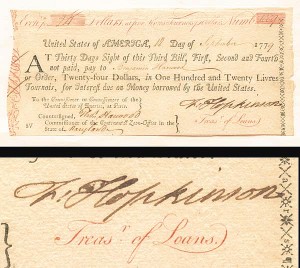 Dollars Number
United States of AMERICA, 18 Day of September 1779
AT Thirty Days Sight of this Third Bill, First, Second and Fourth
not paid, pay to
or Order, Twenty-four Dollars, in One Hundred and Twenty Livres
Tournois, for Interest due on Money borrowed by the United States.
To the Commissioner or Commissioners of the
United States of America, at Paris.
F. Hopkinson
Countersigned,
Treasr. of Loans.
Commissioner of the Continental Loan-Office in the
State of Maryland
F. Hopkinson
Treasr. of Loans.